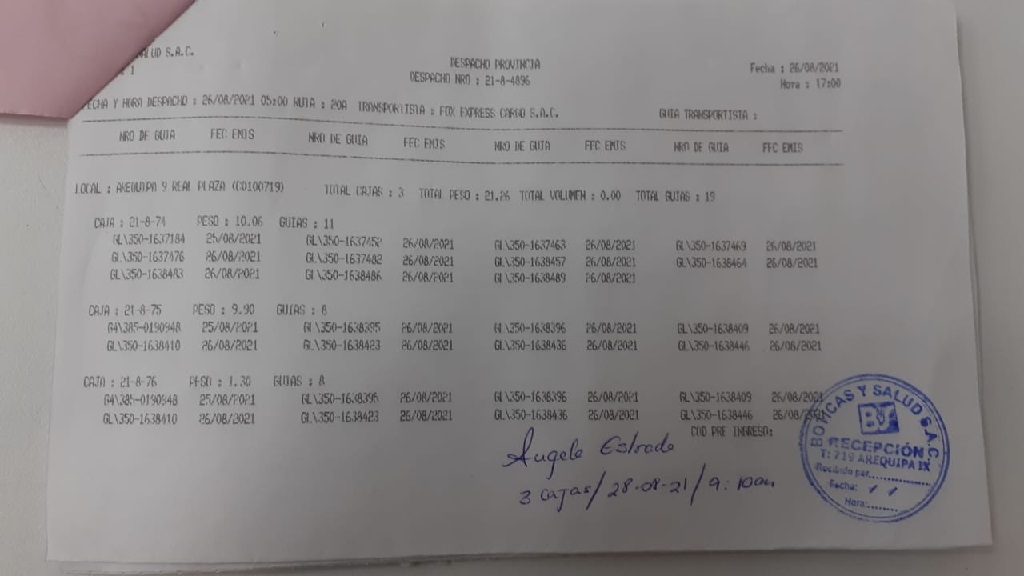 S.A.C.
1
DESPACHO PROVINCIA
DESPACHO NRO : 21-8-4896
Fecha : 26/08/2021
Hora : 17:00
FECHA Y HORA DESPACHO : 26/08/2021 05:00 RUTA : 20A TRANSPORTISTA : FOX EXPRESS CARGO S.A.C. GUIA TRANSPORTISTA :
NRO DE GUIA FEC EMIS NRO DE GUIA FEC EMIS NRO DE GUIA FEC EMIS NRO DE GUIA FEC EMIS
LOCAL : AREQUIPA 9 REAL PLAZA (CD100719) TOTAL CAJAS : 3 TOTAL PESO : 21.26 TOTAL VOLUMEN : 0.00 TOTAL GUIAS : 19
CAJA : 21-8-74 PESO : 10.06 GUIAS : 11
GL\350-1637184 25/08/2021 GL\350-1637452 26/08/2021 GL\350-1637463 26/08/2021 GL\350-1637469 26/08/2021
GL\350-1637476 26/08/2021 GL\350-1637482 26/08/2021 GL\350-1638457 26/08/2021 GL\350-1638464 26/08/2021
GL\350-1638483 26/08/2021 GL\350-1638486 26/08/2021 GL\350-1638489 26/08/2021
CAJA : 21-8-75 PESO : 9.90 GUIAS : 8
G4\385-0190948 25/08/2021 GL\350-1638395 26/08/2021 GL\350-1638396 26/08/2021 GL\350-1638409 26/08/2021
GL\350-1638410 26/08/2021 GL\350-1638423 26/08/2021 GL\350-1638436 26/08/2021 GL\350-1638446 26/08/2021
CAJA : 21-8-76 PESO : 1.30 GUIAS : 8
G4\385-0190948 25/08/2021 GL\350-1638395 26/08/2021 GL\350-1638396 26/08/2021 GL\350-1638409 26/08/2021
GL\350-1638410 26/08/2021 GL\350-1638423 26/08/2021 GL\350-1638436 26/08/2021 GL\350-1638446 26/08/2021
COD PRE INGRESO:
Angela Estrada
3 cajas/28-08-21/9:10am
BOTICAS Y SALUD S.A.C.
BS
RECEPCIÓN
T: 719 AREQUIPA IX
Recibido por:
Fecha:
Hora: